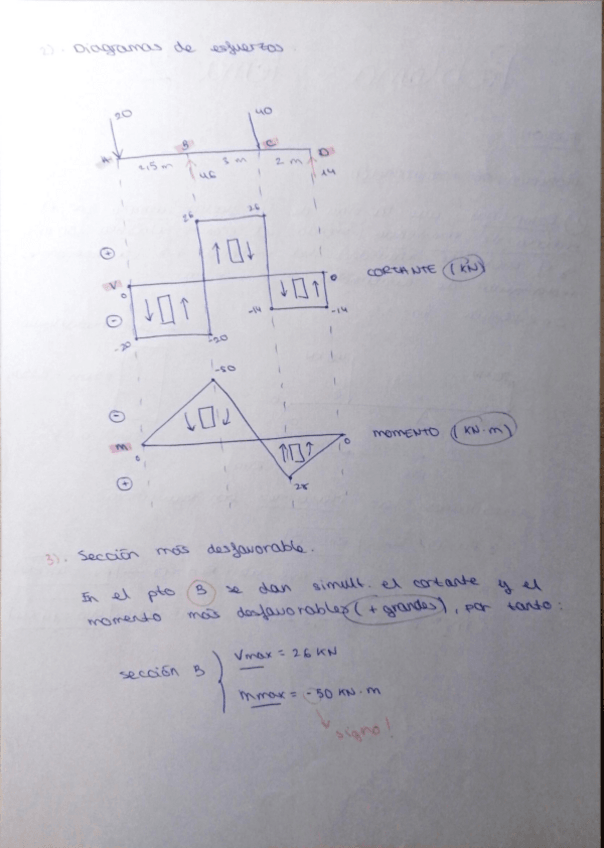 2). Diagramas de esfuerzos.
20 40
A B C D
2,5 m 3 m 2 m
46 14
26 26
+
V 0 0 CORTANTE (KN)
-
-14 -14
-20 -20
-50
-
M 0 0 MOMENTO (KN·m)
+
28
3). Sección más desfavorable.
En el pto B se dan simult. el cortante y el
momento más desfavorables (+ grandes), por tanto:
Vmax = 26 KN
sección B
Mmax = -50 KN·m
signo!